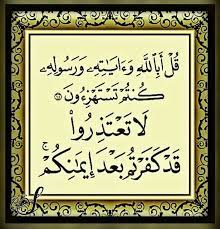 قُلْ أَبِٱللَّهِ وَءَايَـٰتِهِۦ وَرَسُولِهِۦ
كُنتُمْ تَسْتَهْزِءُونَ ۝٦٥
لَا تَعْتَذِرُوا۟
قَدْ كَفَرْتُم بَعْدَ إِيمَـٰنِكُمْ ۚ